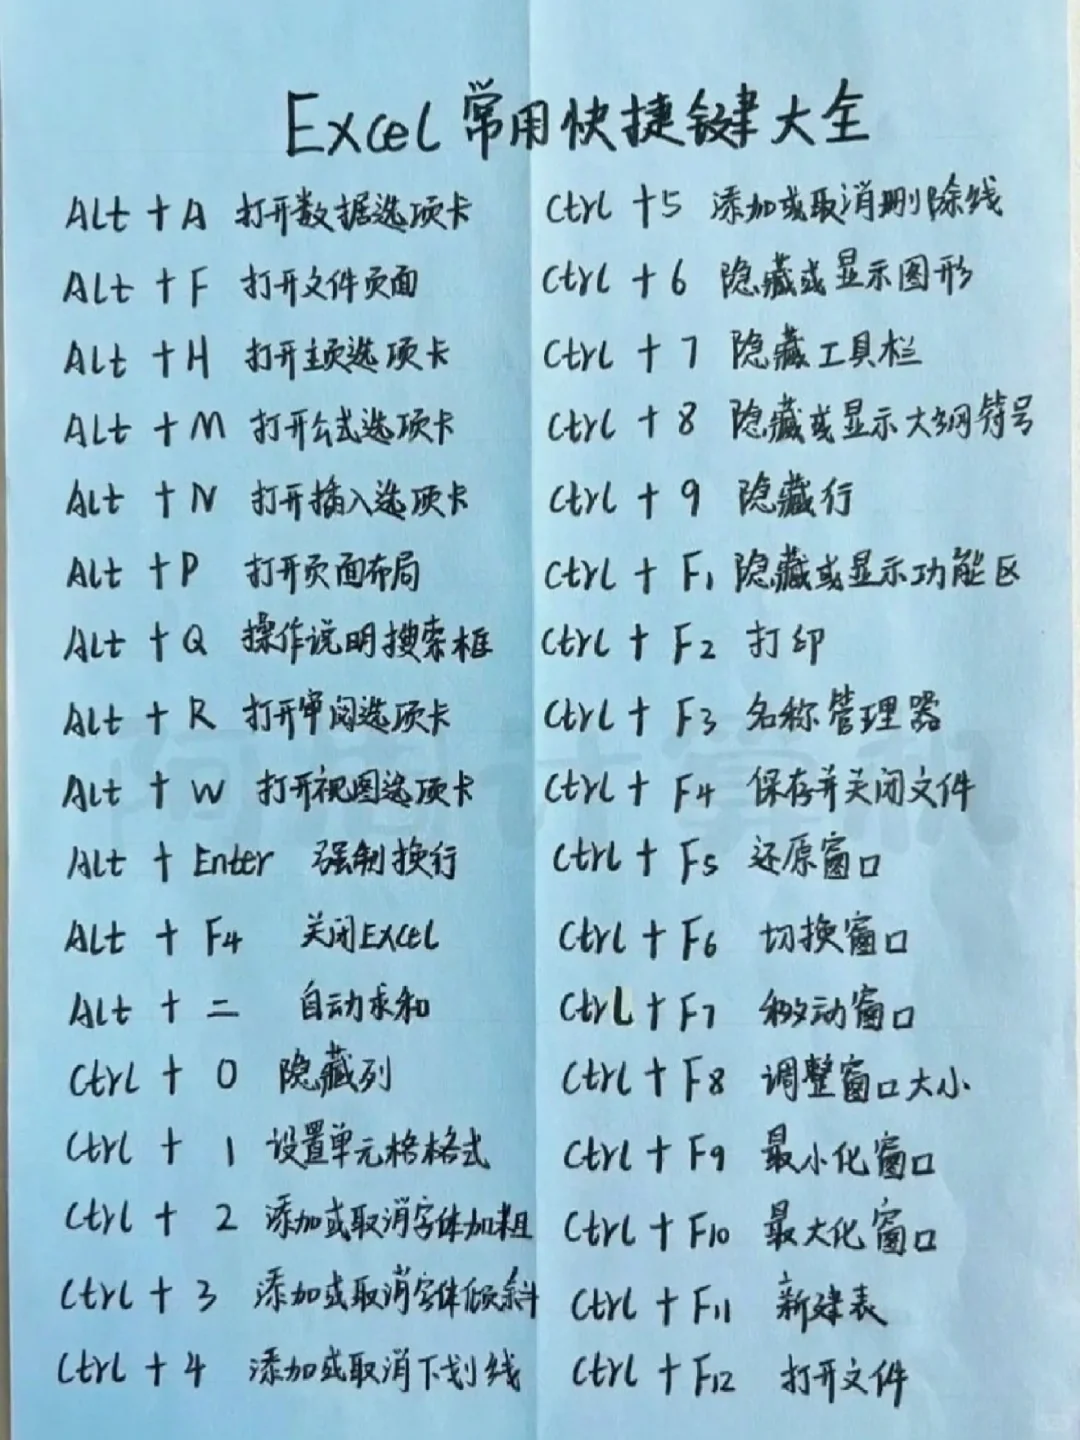 Excel常用快捷键大全
Alt + A 打开数据选项卡
Alt + F 打开文件页面
Alt + H 打开主页选项卡
Alt + M 打开公式选项卡
Alt + N 打开插入选项卡
Alt + P 打开页面布局
Alt + Q 操作说明搜索框
Alt + R 打开审阅选项卡
Alt + W 打开视图选项卡
Alt + Enter 强制换行
Alt + F4 关闭Excel
Alt + = 自动求和
Ctrl + 0 隐藏列
Ctrl + 1 设置单元格格式
Ctrl + 2 添加或取消字体加粗
Ctrl + 3 添加或取消字体倾斜
Ctrl + 4 添加或取消下划线
Ctrl + 5 添加或取消删除线
Ctrl + 6 隐藏或显示图形
Ctrl + 7 隐藏工具栏
Ctrl + 8 隐藏或显示大纲符号
Ctrl + 9 隐藏行
Ctrl + F1 隐藏或显示功能区
Ctrl + F2 打印
Ctrl + F3 名称管理器
Ctrl + F4 保存并关闭文件
Ctrl + F5 还原窗口
Ctrl + F6 切换窗口
Ctrl + F7 移动窗口
Ctrl + F8 调整窗口大小
Ctrl + F9 最小化窗口
Ctrl + F10 最大化窗口
Ctrl + F11 新建表
Ctrl + F12 打开文件